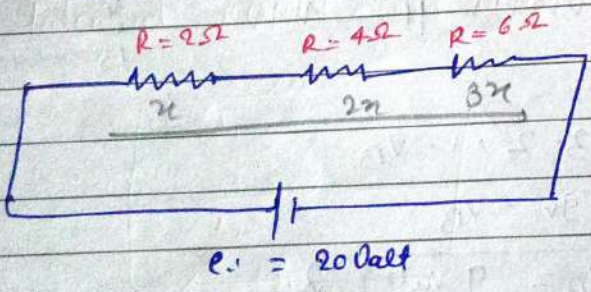 R = 2Ω R = 4Ω R = 6Ω
x 2x 3x
e.: = 20 Valt